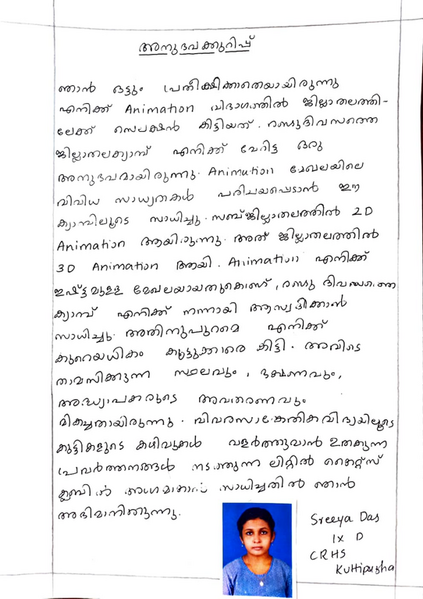 അനുഭവക്കുറിപ്പ്
ഞാൻ ഒട്ടും പ്രതീക്ഷിക്കാതെയായിരുന്നു
എനിക്ക് Animation വിഭാഗത്തിൽ ജില്ലാതലത്തി-
ലേക്ക് സെലക്ഷൻ കിട്ടിയത്. രണ്ടുദിവസത്തെ
ജില്ലാതലക്യാമ്പ് എനിക്ക് വേറിട്ട ഒരു
അനുഭവമായിരുന്നു. Animation മേഖലയിലെ
വിവിധ സാധ്യതകൾ പരിചയപ്പെടാൻ ഈ
ക്യാമ്പിലൂടെ സാധിച്ചു. സബ്ജില്ലാതലത്തിൽ 2D
Animation ആയിരുന്നു. അത് ജില്ലാതലത്തിൽ
3D Animation ആയി. Animation എനിക്ക്
ഇഷ്ട്ടമുള്ള മേഖലയായതുകൊണ്ട്, രണ്ടു ദിവസത്തെ
ക്യാമ്പ് എനിക്ക് നന്നായി ആസ്വദിക്കാൻ
സാധിച്ചു. അതിനുപുറമെ എനിക്ക്
കുറെയധികം കൂട്ടുക്കാരെ കിട്ടി. അവിടെ
താമസിക്കുന്ന സ്ഥലവും, ഭക്ഷണവും,
അദ്ധ്യാപകരുടെ അവതരണവും
മികച്ചതായിരുന്നു. വിവരസാങ്കേതികവിദ്യയിലൂടെ
കുട്ടികളുടെ കഴിവുകൾ വളർത്തുവാൻ ഉതകുന്ന
പ്രവർത്തനങ്ങൾ നടത്തുന്ന ലിറ്റിൽ കൈറ്റ്സ്
ക്ലബ്ബിൽ അംഗമാകാൻ സാധിച്ചതിൽ ഞാൻ
അഭിമാനിക്കുന്നു.
Sreeya Das
IX D
CRHS
Kuttipuzha